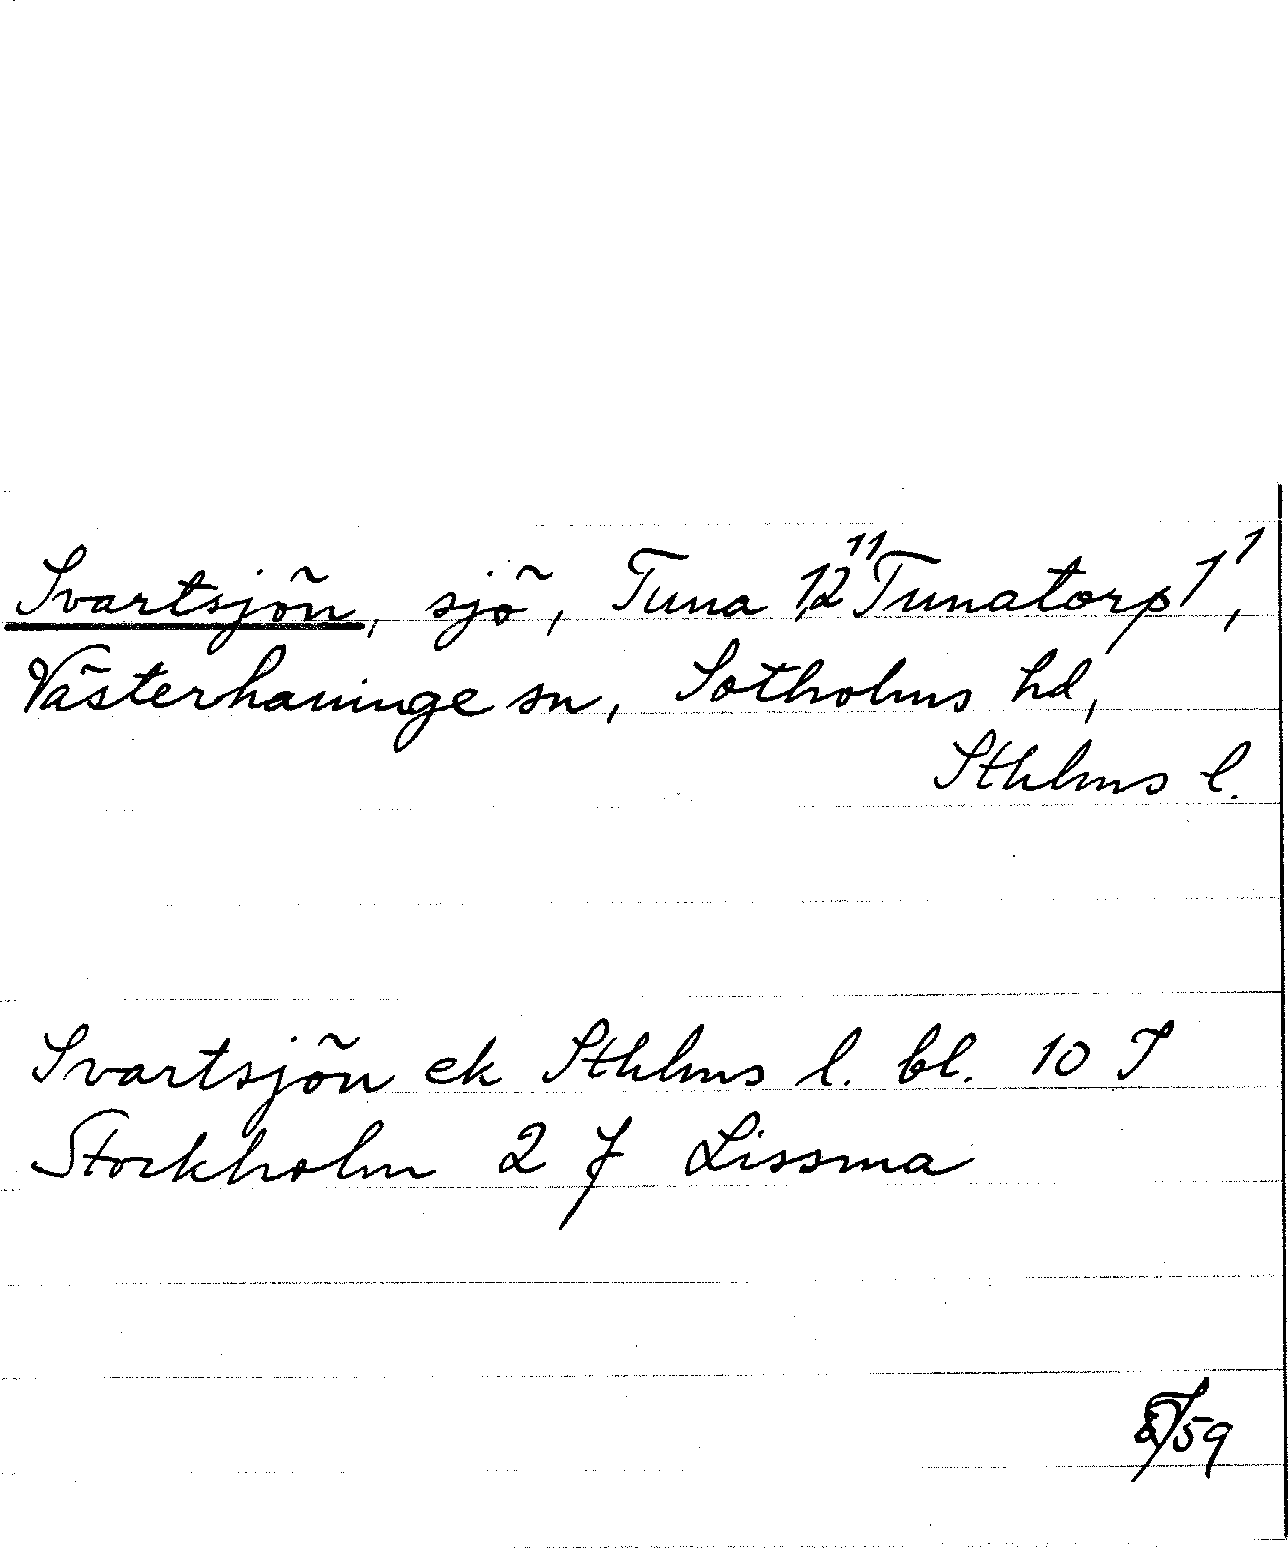 Svartsjön, sjö, Tuna 1,2¹¹ Tunatorp 1¹,
Västerhaninge sn, Sotholms hd,
Sthlms l.
Svartsjön ek Sthlms l. bl. 10 I
Stockholm 2 f Lissma
/59